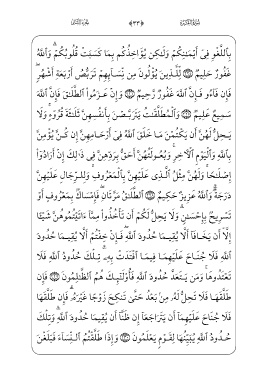 بِٱللَّغْوِ فِىٓ أَيْمَٰنِكُمْ وَلَٰكِن يُؤَاخِذُكُم بِمَا كَسَبَتْ قُلُوبُكُمْ ۗ وَٱللَّهُ
غَفُورٌ حَلِيمٌ لِّلَّذِينَ يُؤْلُونَ مِن نِّسَآئِهِمْ تَرَبُّصُ أَرْبَعَةِ أَشْهُرٍ ۖ
فَإِن فَآءُو فَإِنَّ ٱللَّهَ غَفُورٌ رَّحِيمٌ وَإِنْ عَزَمُوا۟ ٱلطَّلَٰقَ فَإِنَّ ٱللَّهَ
سَمِيعٌ عَلِيمٌ وَٱلْمُطَلَّقَٰتُ يَتَرَبَّصْنَ بِأَنفُسِهِنَّ ثَلَٰثَةَ قُرُوٓءٍ ۚ وَلَا
يَحِلُّ لَهُنَّ أَن يَكْتُمْنَ مَا خَلَقَ ٱللَّهُ فِىٓ أَرْحَامِهِنَّ إِن كُنَّ يُؤْمِنَّ
بِٱللَّهِ وَٱلْيَوْمِ ٱلْءَاخِرِ ۚ وَبُعُولَتُهُنَّ أَحَقُّ بِرَدِّهِنَّ فِى ذَٰلِكَ إِنْ أَرَادُوٓا۟
إِصْلَٰحًا ۚ وَلَهُنَّ مِثْلُ ٱلَّذِى عَلَيْهِنَّ بِٱلْمَعْرُوفِ ۚ وَلِلرِّجَالِ عَلَيْهِنَّ
دَرَجَةٌ ۗ وَٱللَّهُ عَزِيزٌ حَكِيمٌ ٱلطَّلَٰقُ مَرَّتَانِ ۖ فَإِمْسَاكٌۢ بِمَعْرُوفٍ أَوْ
تَسْرِيحٌۢ بِإِحْسَٰنٍ ۗ وَلَا يَحِلُّ لَكُمْ أَن تَأْخُذُوا۟ مِمَّآ ءَاتَيْتُمُوهُنَّ شَيْـًٔا
إِلَّآ أَن يَخَافَآ أَلَّا يُقِيمَا حُدُودَ ٱللَّهِ ۖ فَإِنْ خِفْتُمْ أَلَّا يُقِيمَا حُدُودَ
ٱللَّهِ فَلَا جُنَاحَ عَلَيْهِمَا فِيمَا ٱفْتَدَتْ بِهِۦ ۗ تِلْكَ حُدُودُ ٱللَّهِ فَلَا
تَعْتَدُوهَا ۚ وَمَن يَتَعَدَّ حُدُودَ ٱللَّهِ فَأُو۟لَٰٓئِكَ هُمُ ٱلظَّٰلِمُونَ فَإِن
طَلَّقَهَا فَلَا تَحِلُّ لَهُۥ مِنۢ بَعْدُ حَتَّىٰ تَنكِحَ زَوْجًا غَيْرَهُۥ ۗ فَإِن طَلَّقَهَا
فَلَا جُنَاحَ عَلَيْهِمَآ أَن يَتَرَاجَعَآ إِن ظَنَّآ أَن يُقِيمَا حُدُودَ ٱللَّهِ ۗ وَتِلْكَ
حُدُودُ ٱللَّهِ يُبَيِّنُهَا لِقَوْمٍ يَعْلَمُونَ وَإِذَا طَلَّقْتُمُ ٱلنِّسَآءَ فَبَلَغْنَ